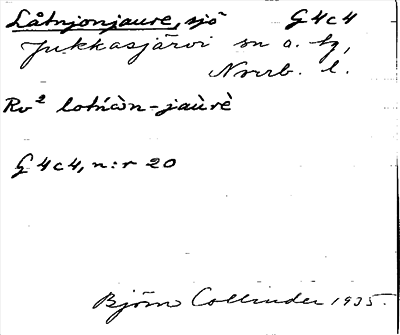 Låtnjonjaure, sjö G4c4
Jukkasjärvi sn o. tg,
Norrb. l.
Rv² lotńòn-jaùrè
G4c4, n:r 20
Björn Collinder 1935.